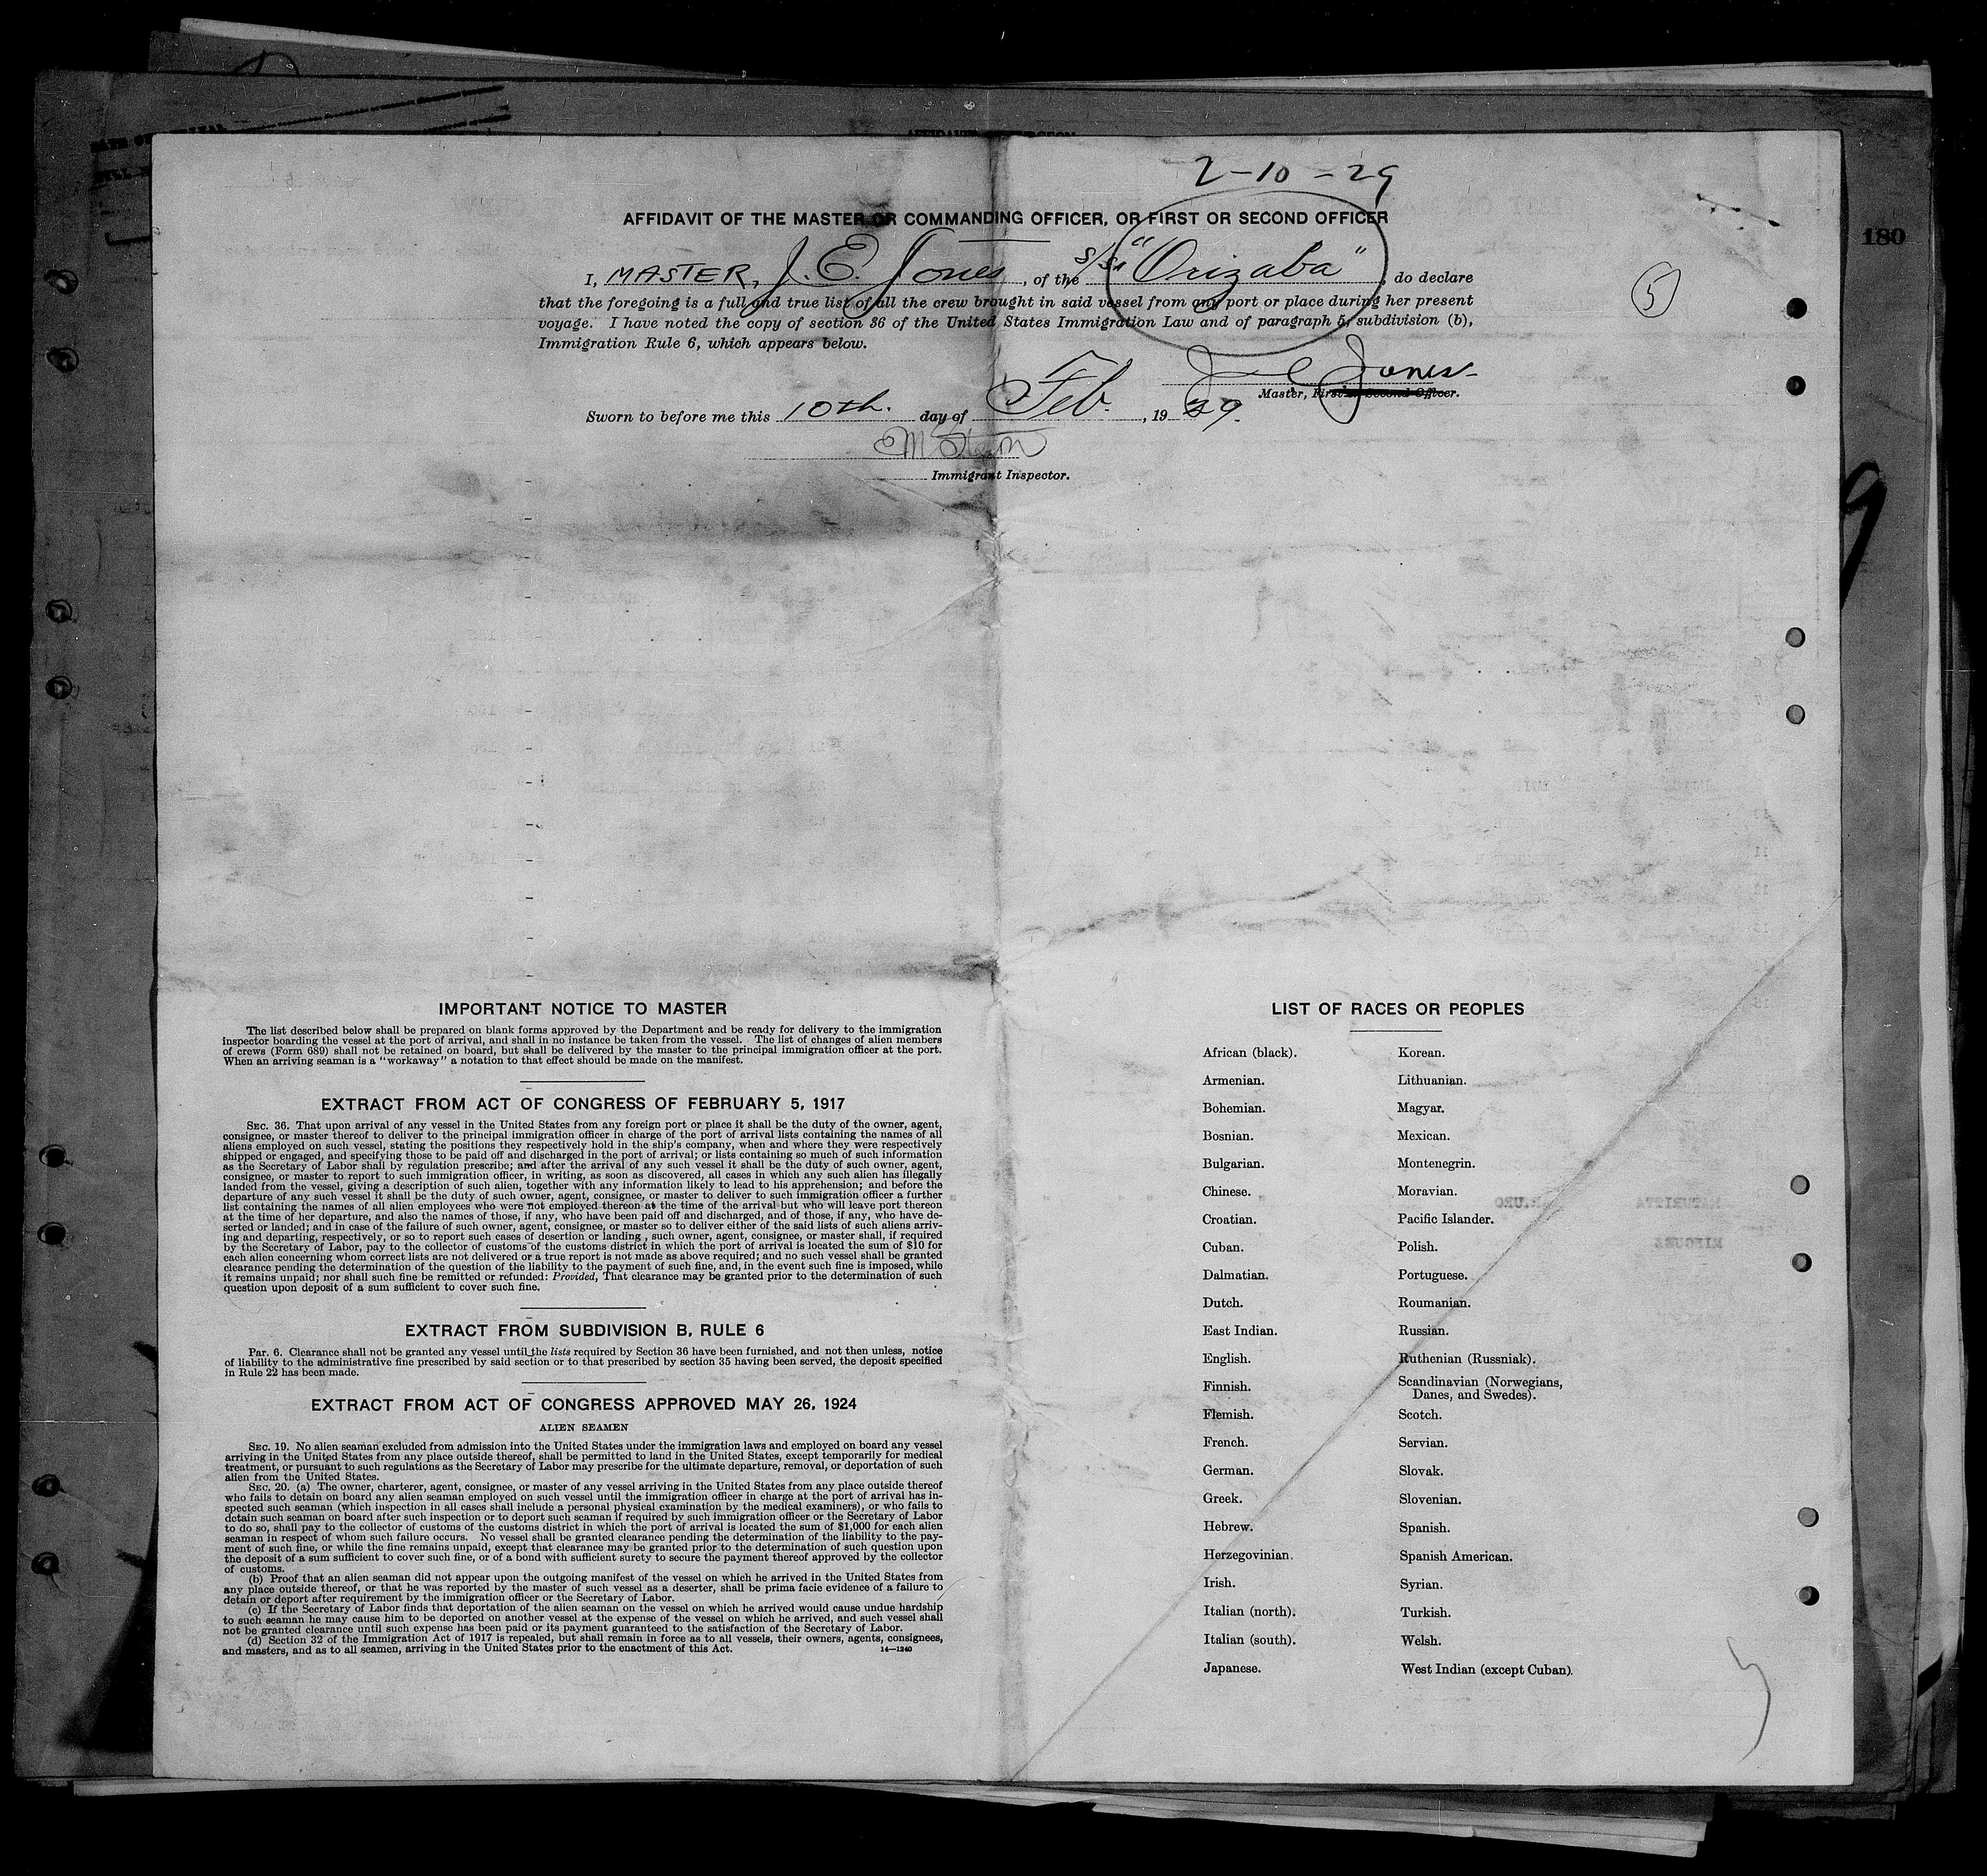 2-10-29
AFFIDAVIT OF THE MASTER OR COMMANDING OFFICER, OR FIRST OR SECOND OFFICER
180
I, MASTER, J. E. Jones, of the S/S "Orizaba", do declare
that the foregoing is a full and true list of all the crew brought in said vessel from any port or place during her present
voyage. I have noted the copy of section 36 of the United States Immigration Law and of paragraph 5, subdivision (b),
Immigration Rule 6, which appears below.
5
J E Jones
Master, First or Second Officer.
Sworn to before me this 10th. day of Feb., 1929.
Immigrant Inspector.
9
IMPORTANT NOTICE TO MASTER
The list described below shall be prepared on blank forms approved by the Department and be ready for delivery to the immigration
inspector boarding the vessel at the port of arrival, and shall in no instance be taken from the vessel. The list of changes of alien members
of crews (Form 689) shall not be retained on board, but shall be delivered by the master to the principal immigration officer at the port.
When an arriving seaman is a "workaway" a notation to that effect should be made on the manifest.
EXTRACT FROM ACT OF CONGRESS OF FEBRUARY 5, 1917
SEC. 36. That upon arrival of any vessel in the United States from any foreign port or place it shall be the duty of the owner, agent,
consignee, or master thereof to deliver to the principal immigration officer in charge of the port of arrival lists containing the names of all
aliens employed on such vessel, stating the positions they respectively hold in the ship's company, when and where they were respectively
shipped or engaged, and specifying those to be paid off and discharged in the port of arrival; or lists containing so much of such information
as the Secretary of Labor shall by regulation prescribe; and after the arrival of any such vessel it shall be the duty of such owner, agent,
consignee, or master to report to such immigration officer, in writing, as soon as discovered, all cases in which any such alien has illegally
landed from the vessel, giving a description of such alien, together with any information likely to lead to his apprehension; and before the
departure of any such vessel it shall be the duty of such owner, agent, consignee, or master to deliver to such immigration officer a further
list containing the names of all alien employees who were not employed thereon at the time of the arrival but who will leave port thereon
at the time of her departure, and also the names of those, if any, who have been paid off and discharged, and of those, if any, who have de-
serted or landed; and in case of the failure of such owner, agent, consignee, or master so to deliver either of the said lists of such aliens arriv-
ing and departing, respectively, or so to report such cases of desertion or landing, such owner, agent, consignee, or master shall, if required
by the Secretary of Labor, pay to the collector of customs of the customs district in which the port of arrival is located the sum of $10 for
each alien concerning whom correct lists are not delivered or a true report is not made as above required; and no such vessel shall be granted
clearance pending the determination of the question of the liability to the payment of such fine, and, in the event such fine is imposed, while
it remains unpaid; nor shall such fine be remitted or refunded: Provided, That clearance may be granted prior to the determination of such
question upon deposit of a sum sufficient to cover such fine.
EXTRACT FROM SUBDIVISION B, RULE 6
Par. 6. Clearance shall not be granted any vessel until the lists required by Section 36 have been furnished, and not then unless, notice
of liability to the administrative fine prescribed by said section or to that prescribed by section 35 having been served, the deposit specified
in Rule 22 has been made.
EXTRACT FROM ACT OF CONGRESS APPROVED MAY 26, 1924
ALIEN SEAMEN
SEC. 19. No alien seaman excluded from admission into the United States under the immigration laws and employed on board any vessel
arriving in the United States from any place outside thereof, shall be permitted to land in the United States, except temporarily for medical
treatment, or pursuant to such regulations as the Secretary of Labor may prescribe for the ultimate departure, removal, or deportation of such
alien from the United States.
SEC. 20. (a) The owner, charterer, agent, consignee, or master of any vessel arriving in the United States from any place outside thereof
who fails to detain on board any alien seaman employed on such vessel until the immigration officer in charge at the port of arrival has in-
spected such seaman (which inspection in all cases shall include a personal physical examination by the medical examiners), or who fails to
detain such seaman on board after such inspection or to deport such seaman if required by such immigration officer or the Secretary of Labor
to do so, shall pay to the collector of customs of the customs district in which the port of arrival is located the sum of $1,000 for each alien
seaman in respect of whom such failure occurs. No vessel shall be granted clearance pending the determination of the liability to the pay-
ment of such fine, or while the fine remains unpaid, except that clearance may be granted prior to the determination of such question upon
the deposit of a sum sufficient to cover such fine, or of a bond with sufficient surety to secure the payment thereof approved by the collector
of customs.
(b) Proof that an alien seaman did not appear upon the outgoing manifest of the vessel on which he arrived in the United States from
any place outside thereof, or that he was reported by the master of such vessel as a deserter, shall be prima facie evidence of a failure to
detain or deport after requirement by the immigration officer or the Secretary of Labor.
(c) If the Secretary of Labor finds that deportation of the alien seaman on the vessel on which he arrived would cause undue hardship
to such seaman he may cause him to be deported on another vessel at the expense of the vessel on which he arrived, and such vessel shall
not be granted clearance until such expense has been paid or its payment guaranteed to the satisfaction of the Secretary of Labor.
(d) Section 32 of the Immigration Act of 1917 is repealed, but shall remain in force as to all vessels, their owners, agents, consignees,
and masters, and as to all seamen, arriving in the United States prior to the enactment of this Act. 14—1240
LIST OF RACES OR PEOPLES
African (black). Korean.
Armenian. Lithuanian.
Bohemian. Magyar.
Bosnian. Mexican.
Bulgarian. Montenegrin.
Chinese. Moravian.
Croatian. Pacific Islander.
Cuban. Polish.
Dalmatian. Portuguese.
Dutch. Roumanian.
East Indian. Russian.
English. Ruthenian (Russniak).
Finnish. Scandinavian (Norwegians,
Danes, and Swedes).
Flemish. Scotch.
French. Servian.
German. Slovak.
Greek. Slovenian.
Hebrew. Spanish.
Herzegovinian. Spanish American.
Irish. Syrian.
Italian (north). Turkish.
Italian (south). Welsh.
Japanese. West Indian (except Cuban).